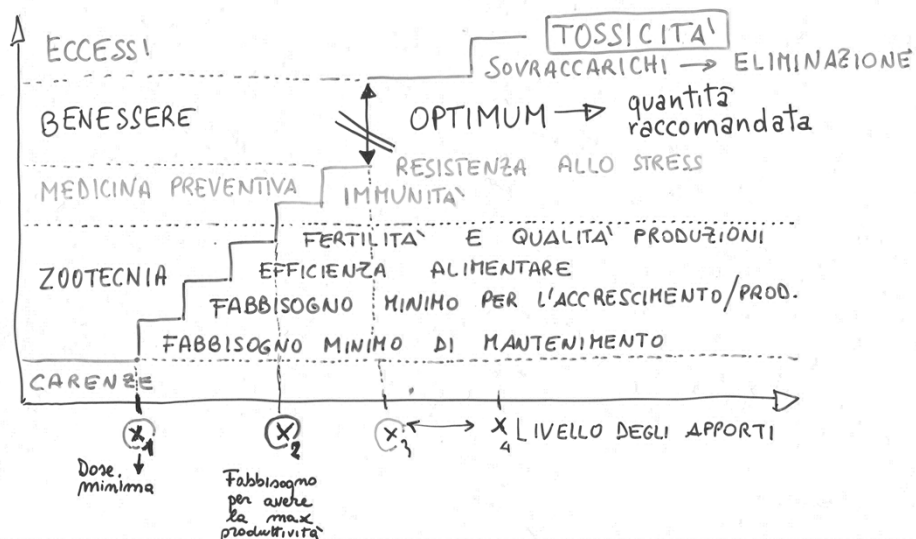 TOSSICITA'
ECCESSI
SOVRACCARICHI → ELIMINAZIONE
BENESSERE
OPTIMUM → quantità
raccomandata
RESISTENZA ALLO STRESS
MEDICINA PREVENTIVA
IMMUNITA'
FERTILITA' E QUALITA' PRODUZIONI
ZOOTECNIA
EFFICIENZA ALIMENTARE
FABBISOGNO MINIMO PER L'ACCRESCIMENTO/PROD.
FABBISOGNO MINIMO DI MANTENIMENTO
CARENZE
x1 x2 x3 ↔ x4 LIVELLO DEGLI APPORTI
Dose
minima
Fabbisogno
per avere
la max
produttività